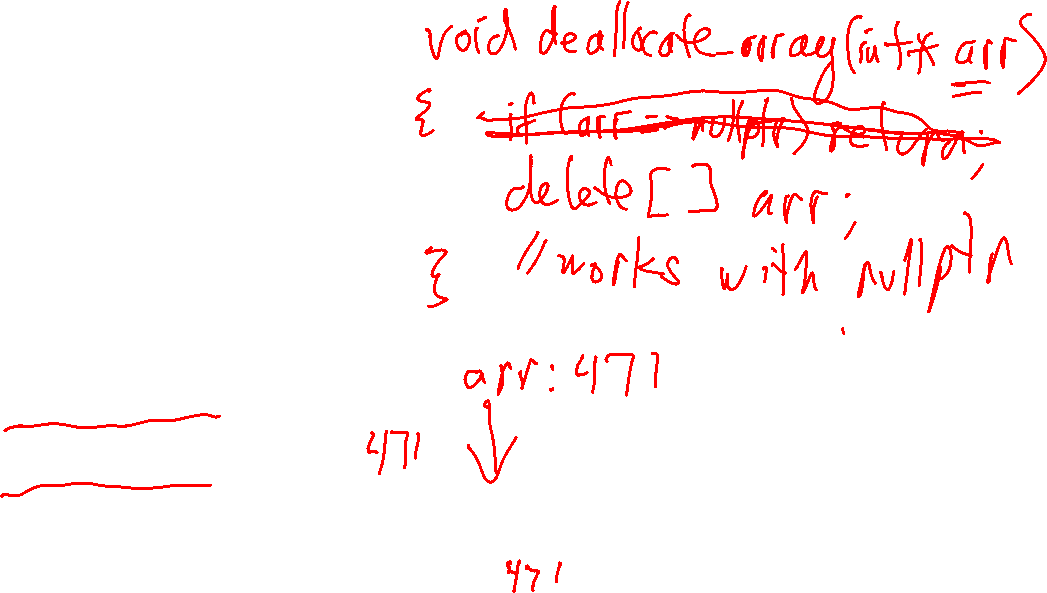 void deallocate_array(int* arr)
{ if (arr == nullptr) return;
delete[] arr;
} //works with nullptr
arr: 471
471
471